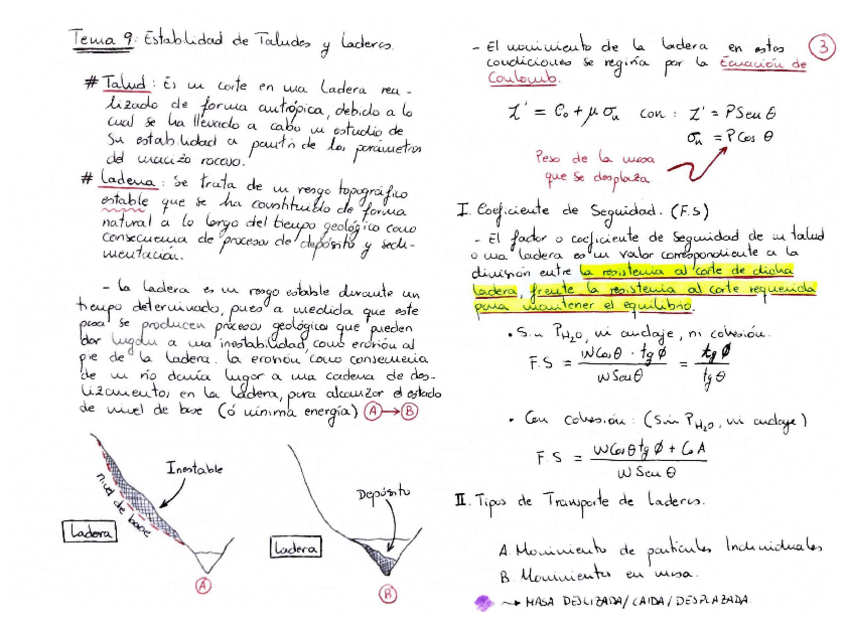 Tema 9: Estabilidad de Taludes y laderas.
# Talud: Es un corte en una ladera rea-
lizado de forma antrópica, debido a lo
cual se ha llevado a cabo un estudio de
su estabilidad a partir de los parámetros
del macizo rocoso.
# Ladera: Se trata de un rasgo topográfico
estable que se ha constituido de forma
natural a lo largo del tiempo geológico como
consecuencia de procesos de depósito y sedi-
mentación.
- la ladera es un rasgo estable durante un
tiempo determinado, pues a medida que este
pasa se producen procesos geológicos que pueden
dar lugar a una inestabilidad, como erosión al
pie de la ladera. la erosión como consecuencia
de un río daría lugar a una cadena de des-
lizamientos en la ladera, para alcanzar el estado
de nivel de base (ó mínima energía) A → B
Inestable
nivel de base
Ladera
A
Depósito
Ladera
B
3
- El movimiento de la ladera en estas
condiciones se regiría por la Ecuación de
Coulomb.
Z' = C₀ + μ σₙ con: Z' = P Sen θ
σₙ = P Cos θ
Peso de la masa
que se desplaza
I. Coeficiente de Seguridad. (F.S)
- El factor o coeficiente de seguridad de un talud
o una ladera es un valor correspondiente a la
división entre la resistencia al corte de dicha
ladera, frente la resistencia al corte requerida
para mantener el equilibrio.
• Sin P H₂O, ni anclaje, ni cohesión.
F.S = W Cos θ · tg Ø / W Sen θ = tg Ø / tg θ
• Con cohesión: (Sin P H₂O, ni anclaje)
F.S = W Cos θ tg Ø + C₀ A / W Sen θ
II. Tipos de Transporte de laderas.
A. Movimiento de partículas Individuales
B. Movimientos en masa.
→ MASA DESLIZADA/CAIDA/DESPLAZADA.